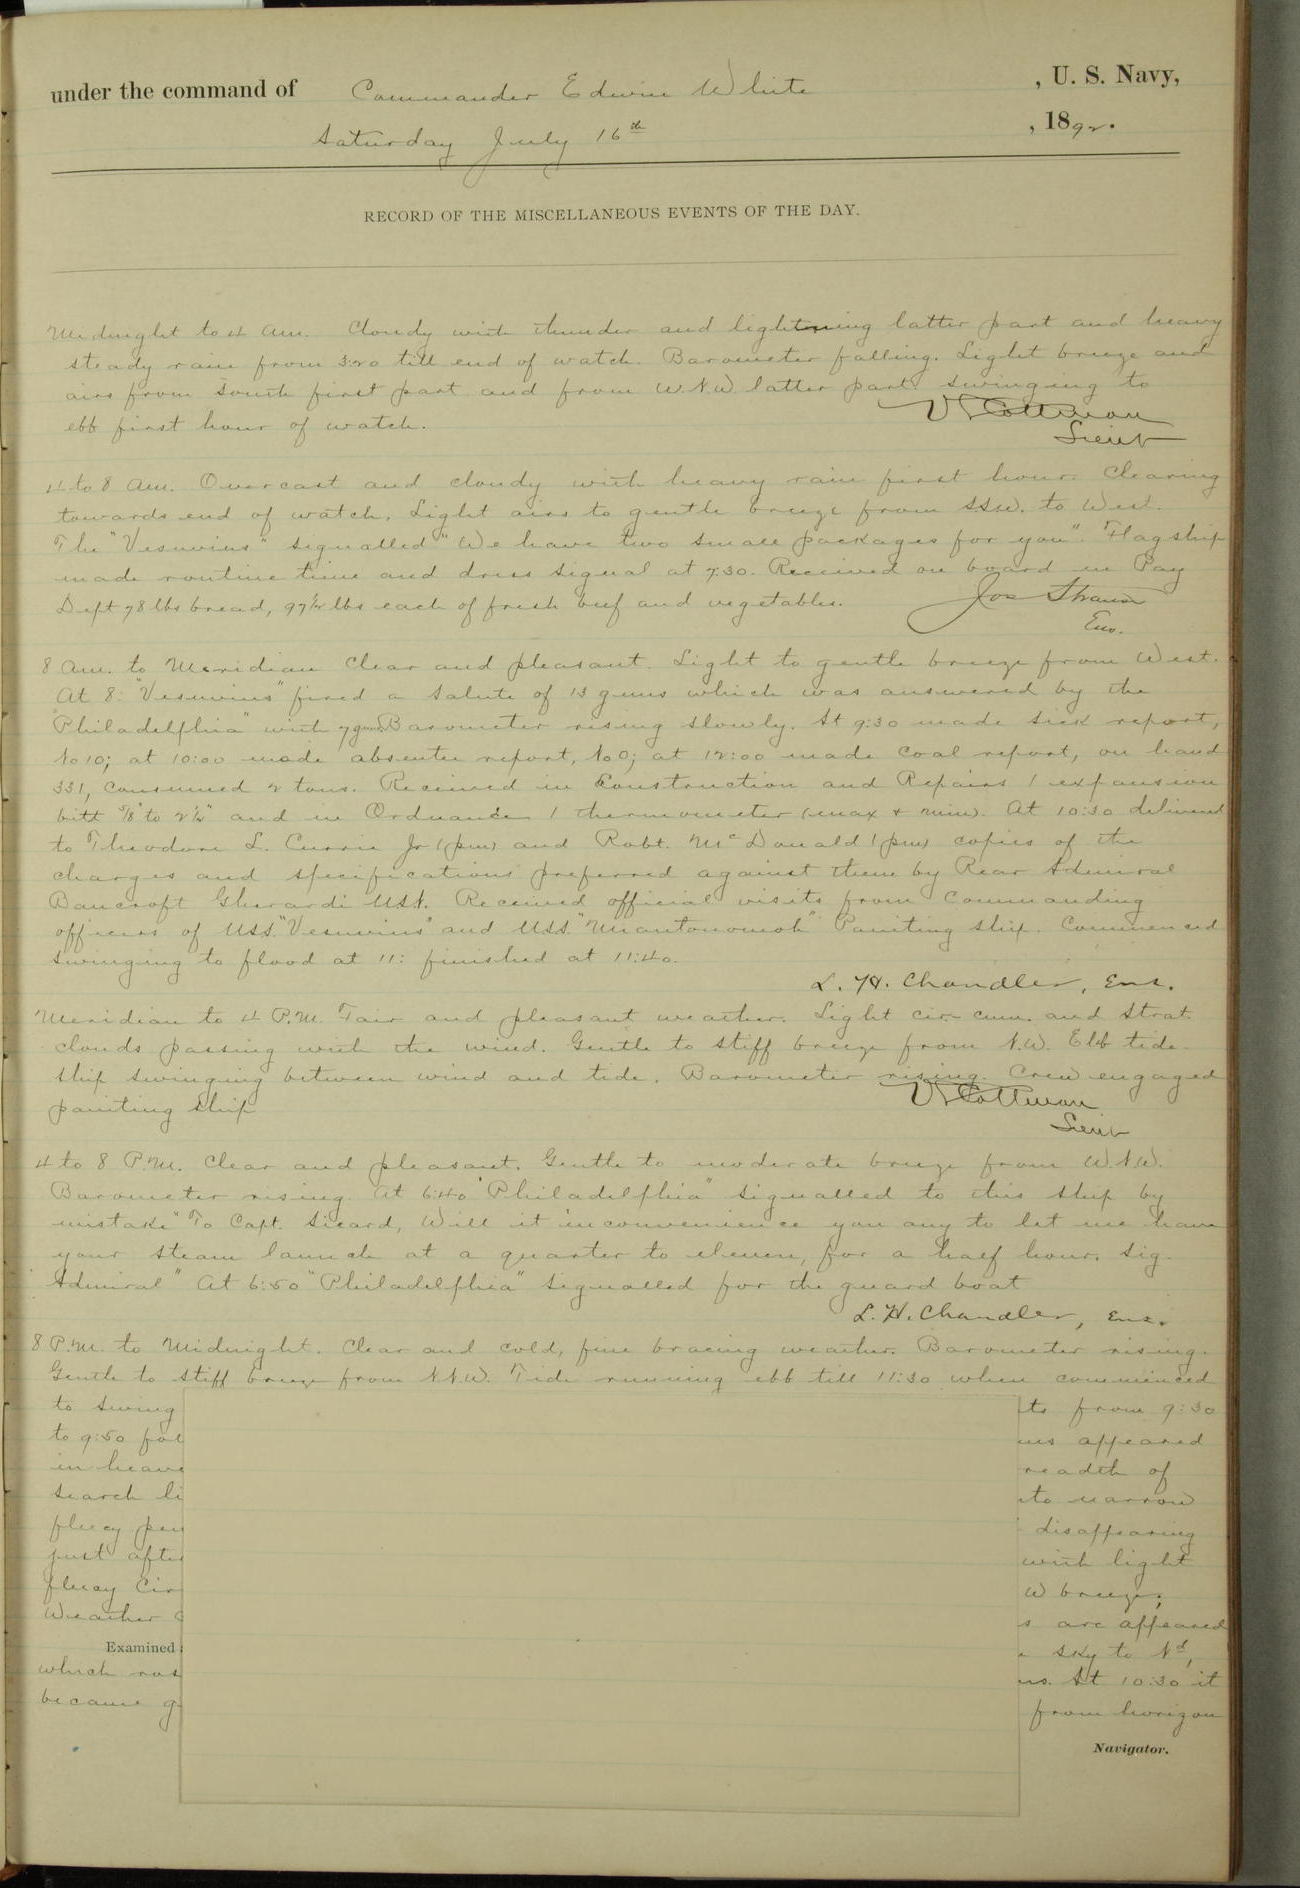 under the command of Commander Edwin White , U. S. Navy,
Saturday July 16th , 1892.
RECORD OF THE MISCELLANEOUS EVENTS OF THE DAY.
Midnight to 4 am. Cloudy with thunder and lightning latter part and heavy
steady rain from 3:20 till end of watch. Barometer falling. Light breeze and
airs from South first part and from W.N.W. latter part. Swinging to
ebb first hour of watch.
V Cottman
Lieut
4 to 8 am. Overcast and cloudy with heavy rain first hour. Clearing
towards end of watch. Light airs to gentle breeze from SSW. to West.
The "Vesuvius" signalled "We have two small packages for you". Flagship
made routine time and dress signal at 7:30. Received on board in Pay
Dept 78 lbs bread, 97½ lbs each of fresh beef and vegetables.
Jos Strauss
Ens.
8 am. to Meridian Clear and pleasant. Light to gentle breeze from West.
At 8: "Vesuvius" fired a salute of 13 guns which was answered by the
"Philadelphia" with 7 guns. Barometer rising slowly. At 9:30 made sick report,
No 10; at 10:00 made absentee report, No 0; at 12:00 made coal report, on hand
331, consumed 2 tons. Received in Construction and Repairs 1 expansion
bitt ⅝" to 2¼" and in Ordnance 1 thermometer (max & min). At 10:30 delivered
to Theodore L. Currie Jr (pm) and Robt. McDonald (pm) copies of the
charges and specifications preferred against them by Rear Admiral
Bancroft Gherardi USN. Received official visits from Commanding
officers of USS. "Vesuvius" and USS. "Miantonomoh" Painting ship. Commenced
swinging to flood at 11: finished at 11:40.
L. H. Chandler, Ens.
Meridian to 4 P.M. Fair and pleasant weather. Light cir-cum. and Strat.
clouds passing with the wind. Gentle to stiff breeze from N.W. Ebb tide
ship swinging between wind and tide. Barometer rising. Crew engaged
painting ship
V Cottman
Lieut
4 to 8 P.M. Clear and pleasant. Gentle to moderate breeze from W.N.W.
Barometer rising. At 6:40 "Philadelphia" signalled to this ship by
mistake "To Capt. Sicard, Will it inconvenience you any to let me have
your steam launch at a quarter to eleven, for a half hour. Sig.
Admiral" At 6:50 "Philadelphia" signalled for the guard boat
L. H. Chandler, Ens.
8 P.M. to Midnight. Clear and cold, fine bracing weather. Barometer rising.
Gentle to stiff breeze from N.N.W. Tide running ebb till 11:30 when commenced
to swing from 9:30
to 9:50 appeared
in of
search narrow
fleecy disappearing
just with light
fleecy Cir W breeze;
Weather arc appeared
Examined sky to Nd,
which At 10:30 it
became from horizon
Navigator.